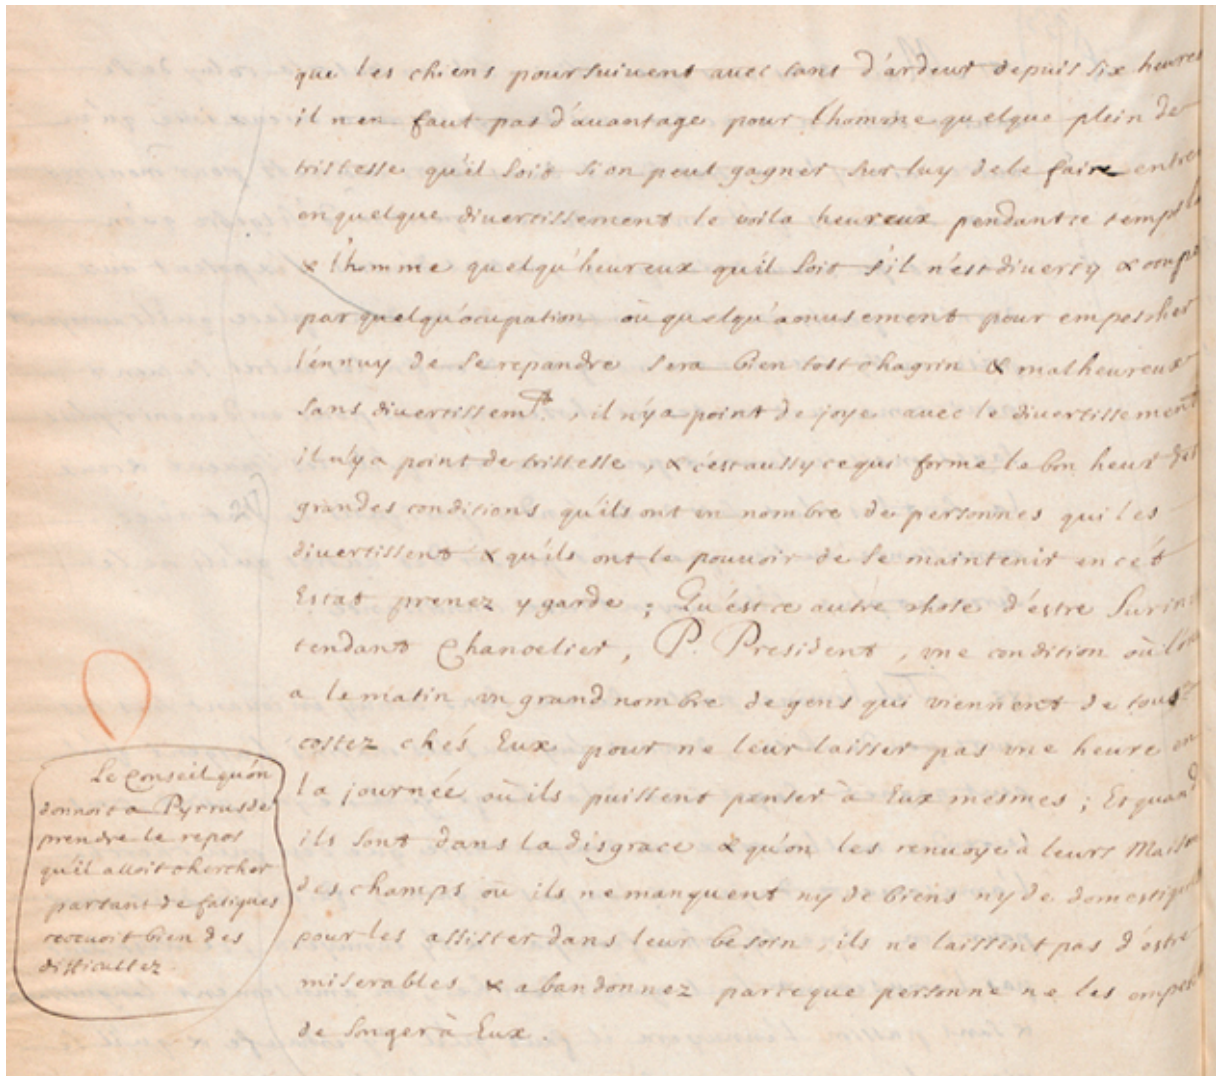 que les chiens poursuivent avec tant d'ardeur depuis six heures
il n'en faut pas d'auantage pour l'homme quelque plein de
tristesse qu'il soit si on peut gagner sur luy de le faire entrer
en quelque diuertissement le voila heureux pendant ce temps la
& l'homme quelqu'heureux qu'il soit s'il n'est diuerty & ocupé
par quelqu'ocupation où quelqu'amusement pour empescher
l'énnuy de se repandre sera bien tost chagrin & malheureux
sans diuertissemt. il n'y a point de joye auec le diuertissement
il n'y a point de tristesse, & c'est aussy ce qui forme le bon heur des
grandes conditions qu'ils ont vn nombre de personnes qui les
diuertissent & qu'ils ont le pouuoir de se maintenir en cét
Estat prenez y garde ; Qu'est ce autre chose d'estre Surin
tendant Chancelier, P. President, vne condition où l'on
a le matin vn grand nombre de gens qui viennent de tous
costez chés Eux pour ne leur laisser pas vne heure en
la journée où ils puissent penser à Eux mesmes ; Et quand
ils sont dans la disgrace & qu'on les renuoye à leurs Maisons
des champs où ils ne manquent ny de biens ny de domestiques
pour les assister dans leur besoin, ils ne laissent pas d'estre
miserables & abandonnez parceque personne ne les empesche
de songer à Eux.
Le Conseil qu'on
donnoit a Pyrrus de
prendre le repos
qu'il alloit chercher
par tant de fatigues
receuoit bien des
difficultez.